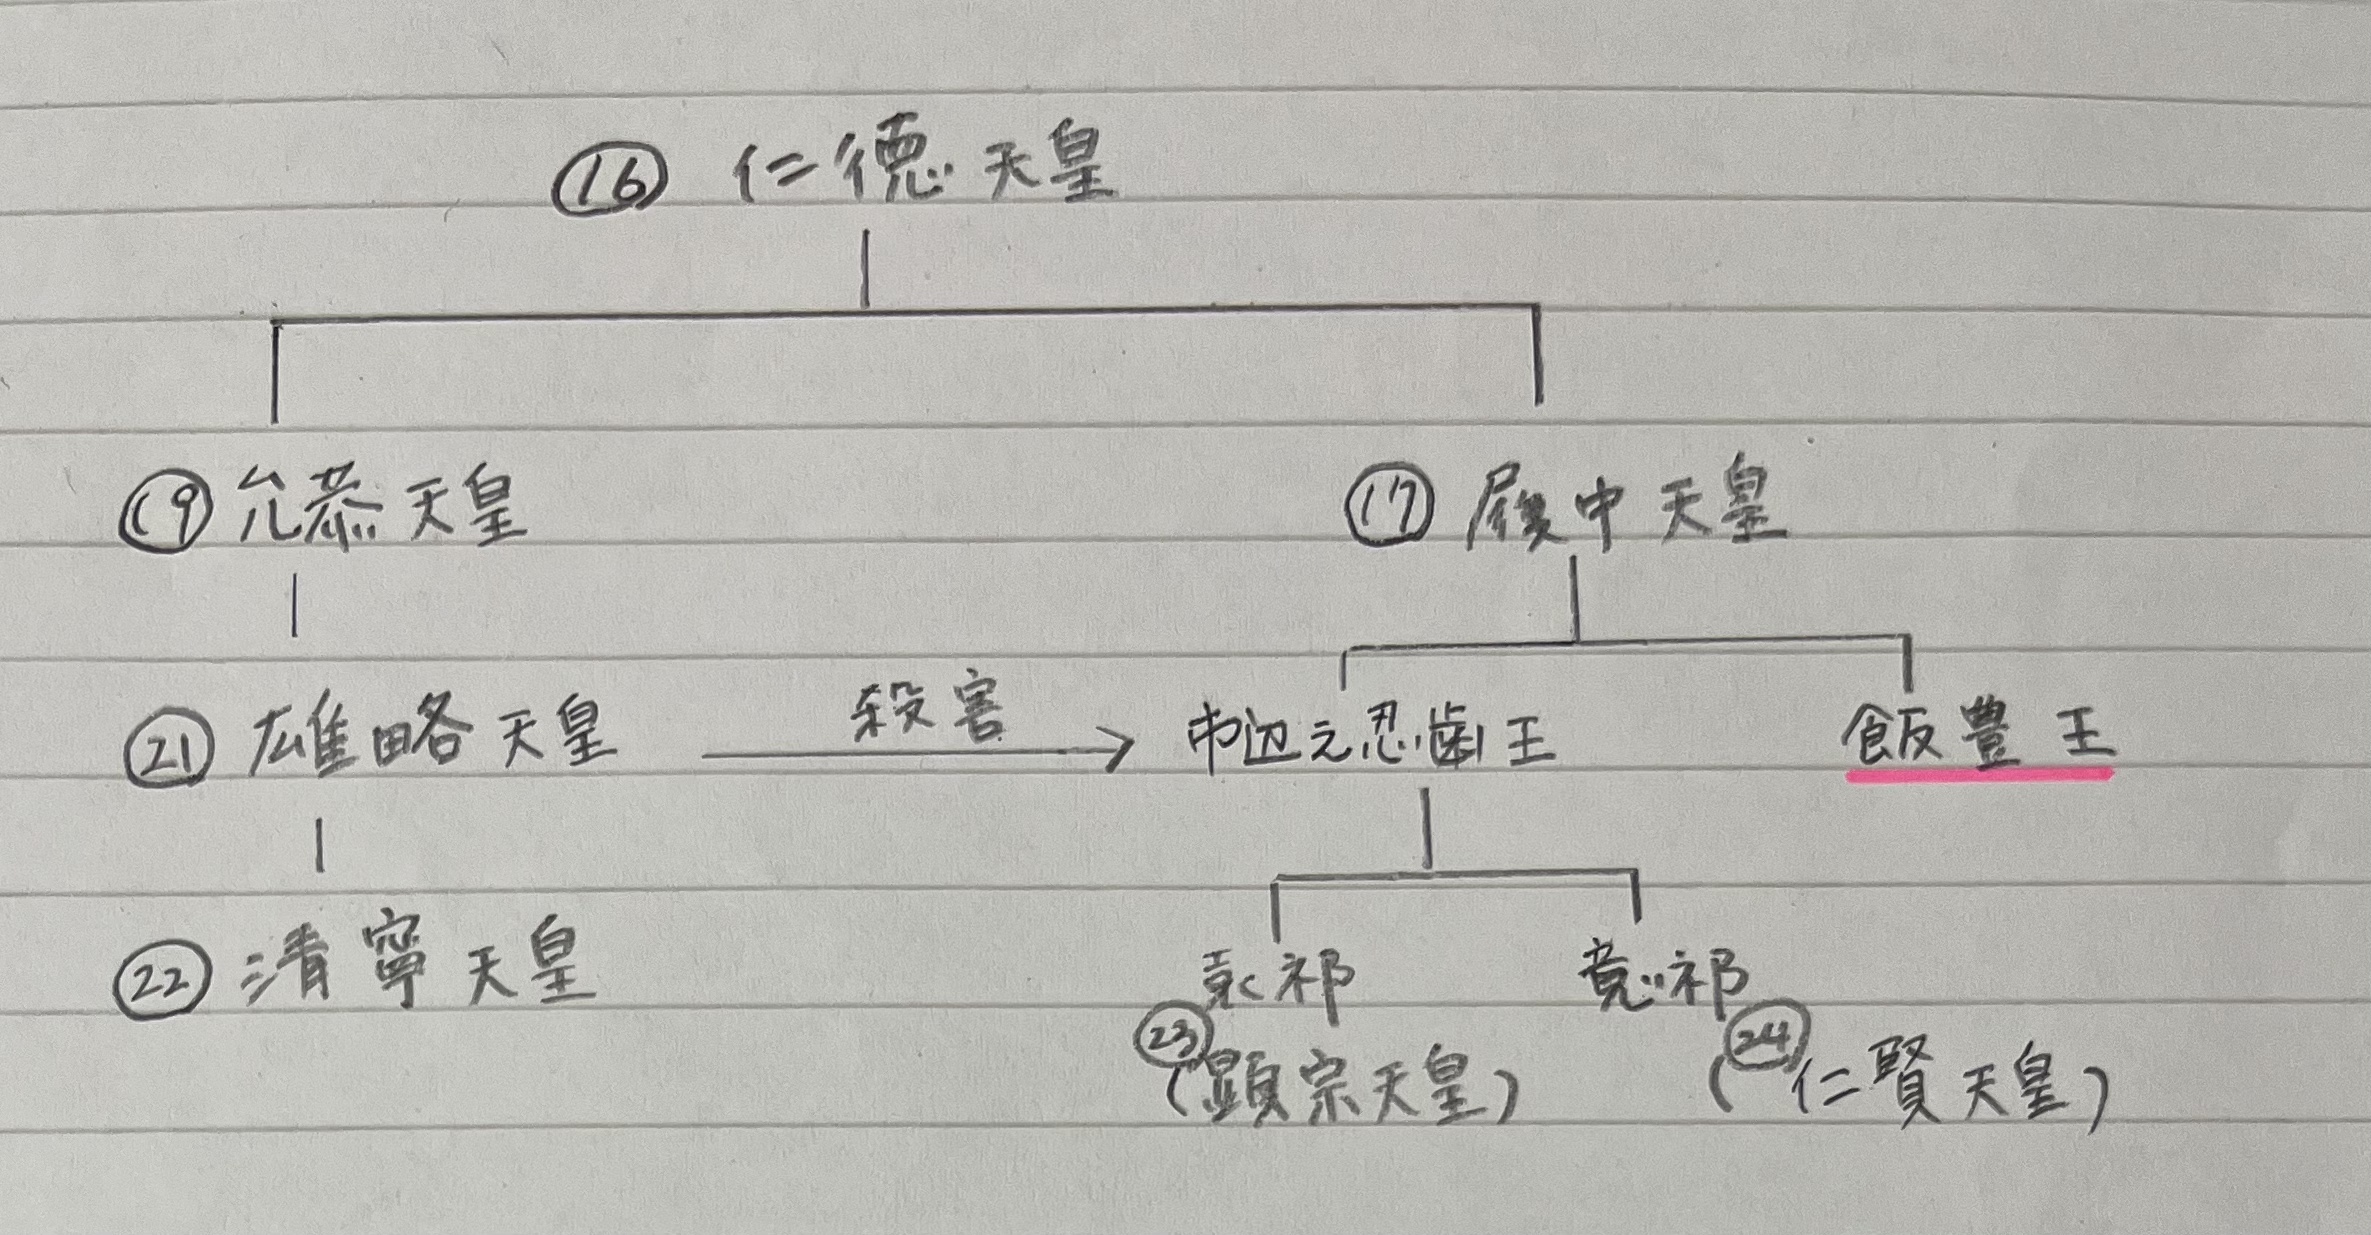 ⑯ 仁徳天皇
⑲ 允恭天皇
⑰ 履中天皇
㉑ 雄略天皇
殺害
市辺元忍歯王
飯豊王
㉒ 清寧天皇
袁祁
意祁
㉓
(顕宗天皇)
㉔
(仁賢天皇)